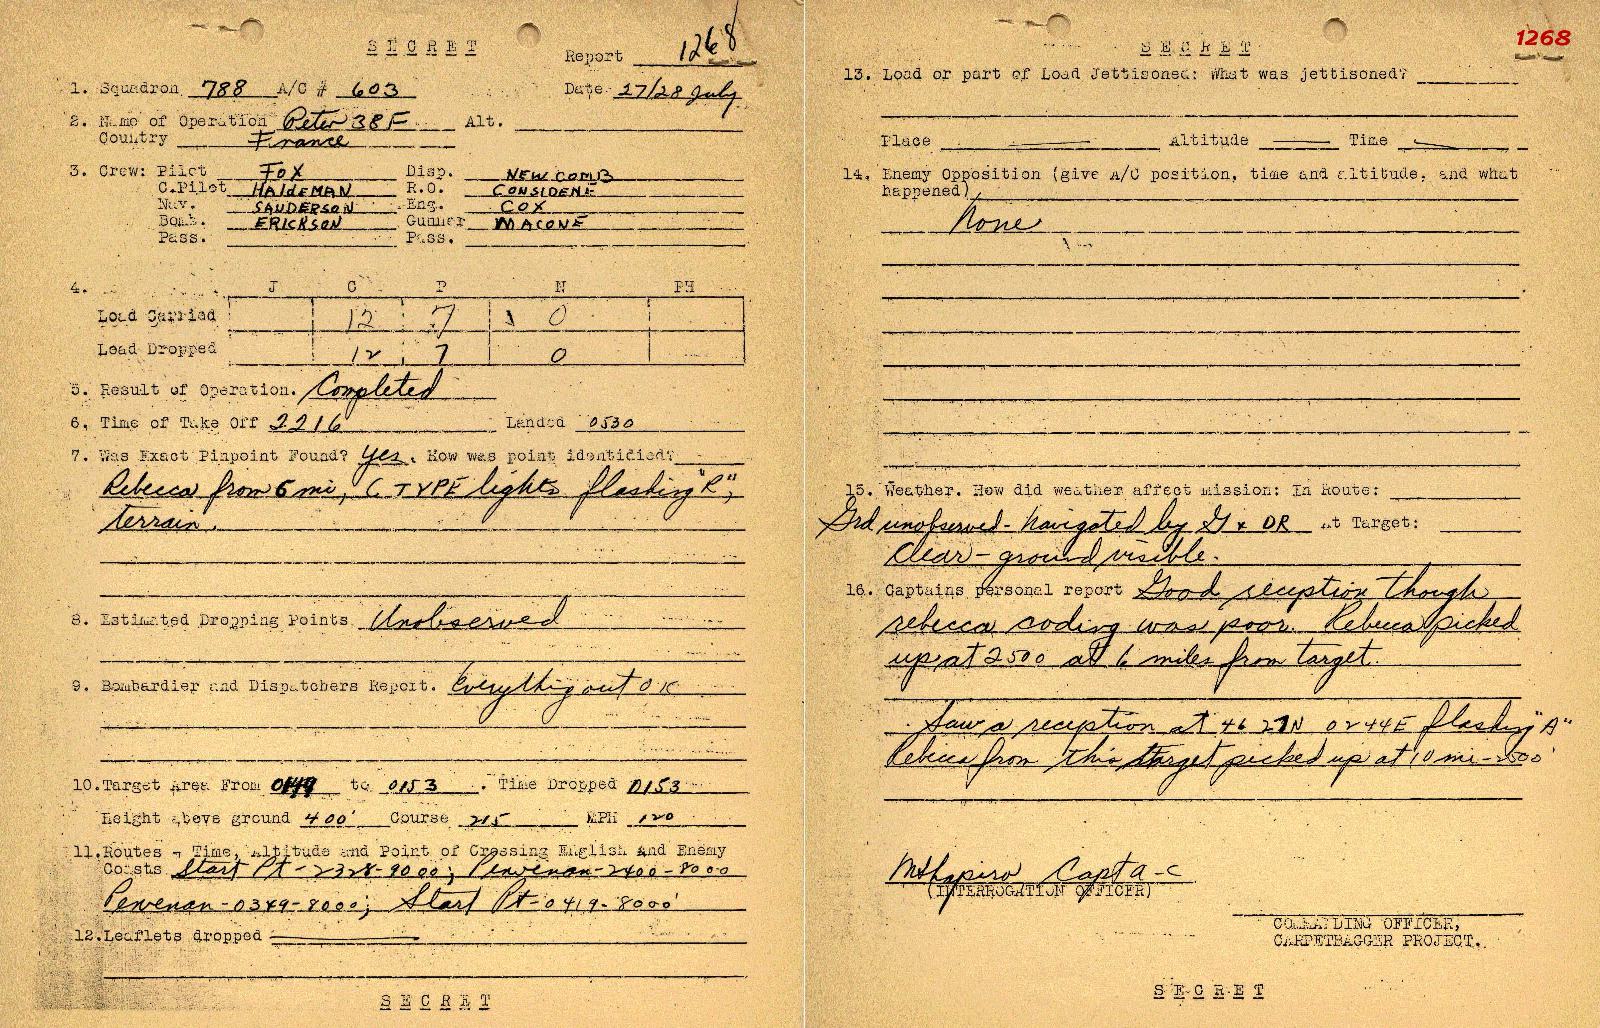 SECRET
Report 1268
1. Squadron 788 A/C # 603 Date 27/28 July
2. Name of Operation Peter 38F Alt.
Country France
3. Crew: Pilot FOX Disp. NEWCOMB
C.Pilot HALDEMAN R.O. CONSIDENE
Nav. SANDERSON Eng. COX
Bomb. ERICKSON Gunner MACONE
Pass. Pass.
4. J C P N PH
Load Carried 12 7 0
Load Dropped 12 7 0
5. Result of Operation. Completed
6. Time of Take Off 2216 Landed 0530
7. Was Exact Pinpoint Found? Yes. How was point identified?
Rebecca from 6 mi, C TYPE lights flashing "R",
terrain.
8. Estimated Dropping Points Unobserved
9. Bombardier and Dispatchers Report. Everything out OK
10. Target Area From to 0153. Time Dropped 0153
Height above ground 400' Course 215 MPH 120
11. Routes - Time, Altitude and Point of Crossing English and Enemy
Coasts Start Pt-2328-9000; Pewenan-2400-8000
Pewenan-0349-8000; Start Pt-0419-8000'
12. Leaflets dropped
SECRET
SECRET
1268
13. Load or part of Load Jettisoned: What was jettisoned?
Place Altitude Time
14. Enemy Opposition (give A/C position, time and altitude, and what
happened)
None
15. Weather. How did weather affect mission: In Route:
Grd unobserved - Navigated by G & DR At Target:
Clear - ground visible.
16. Captains personal report Good reception though
rebecca coding was poor. Rebecca picked
up at 2500 at 6 miles from target.
Saw a reception at 46 27N 02 44E flashing "A"
Rebecca from this target picked up at 10 mi-2500'
MShapiro Capt A-C
(INTERROGATION OFFICER)
COMMANDING OFFICER,
CARPETBAGGER PROJECT.
SECRET